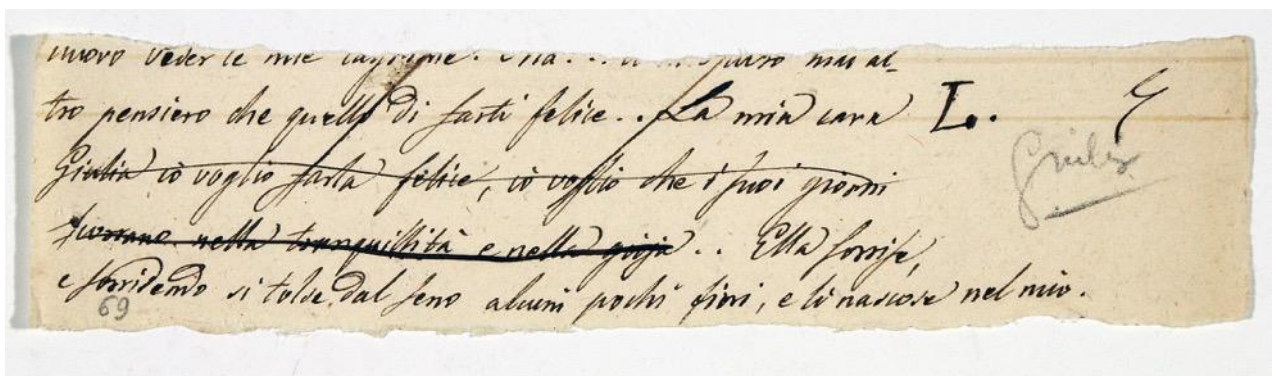 nuovo veder le mie lagrime. Ma... mai al-
tro pensiero che quello di farti felice.. La mia cara L.
Giulia io voglio farla felice, io voglio che i suoi giorni
scorrano nella tranquillità e nella gioja.. Ella sorrise,
e sorridendo si tolse dal seno alcuni pochi fiori, e li nascose nel mio.
69